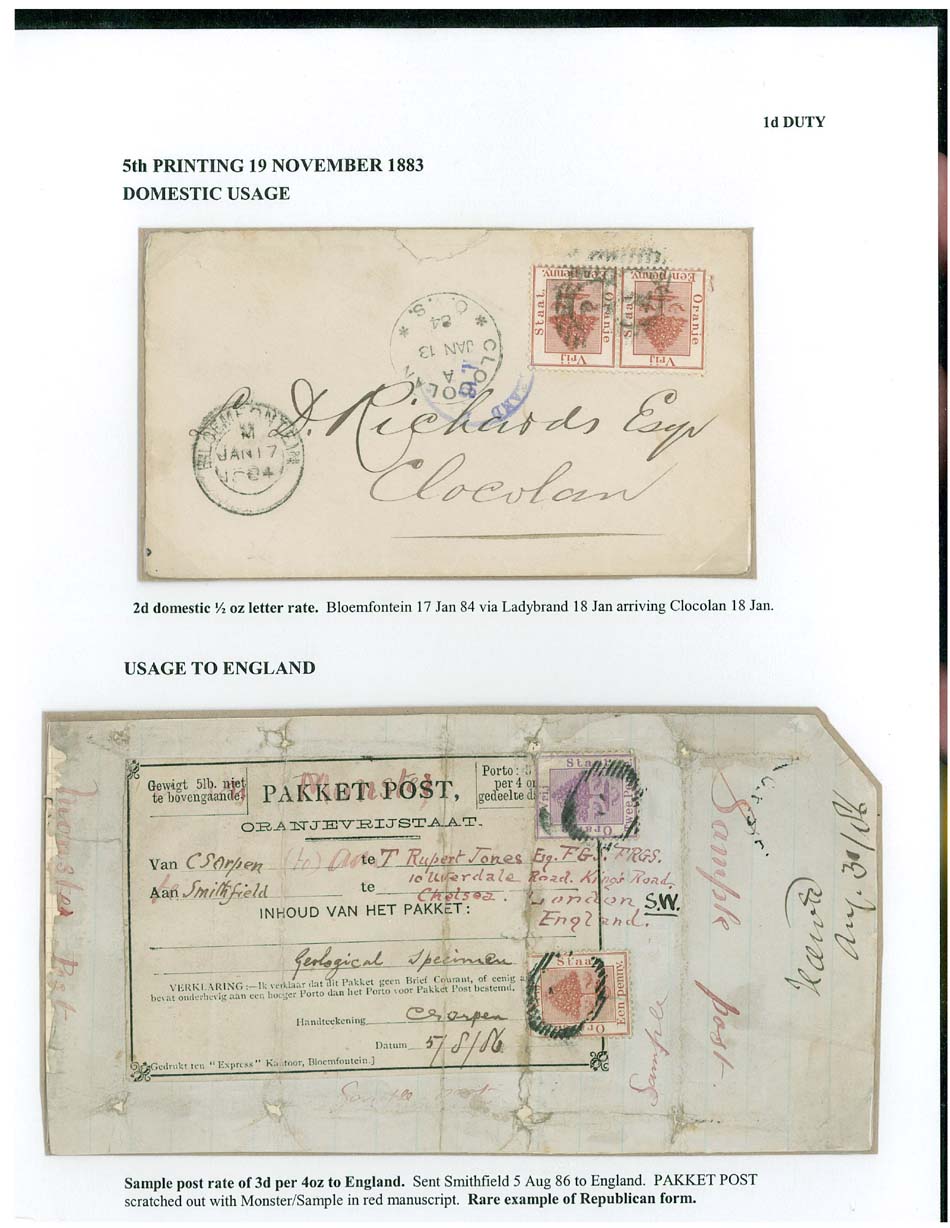 1d DUTY
5th PRINTING 19 NOVEMBER 1883
DOMESTIC USAGE
Een penny.
Oranje
Staat.
Vrij
Een penny.
Oranje
Staat.
Vrij
CLOCOLAN
A
JAN 13
84
O.V.S.
BLOEMFONTEIN
M
JAN 17
D. Richards Esqr
Clocolan
2d domestic ½ oz letter rate. Bloemfontein 17 Jan 84 via Ladybrand 18 Jan arriving Clocolan 18 Jan.
USAGE TO ENGLAND
Gewigt 5lb. niet
te bovengaande
PAKKET POST,
Porto:
per 4 o
gedeelte d
ORANJEVRIJSTAAT.
Van C S Orpen (to) te T Rupert Jones Esq. F.G.S. F.R.G.S.
Road. King's Road,
Aan Smithfield te Chelsea. London S.W.
England.
INHOUD VAN HET PAKKET:
Geological Specimen
VERKLARING:—Ik verklaar dat dit Pakket geen Brief Courant, of eenig a
bevat onderhevig aan een hooger Porto dan het Porto voor Pakket Post bestemd.
Handteekening C S Orpen
Datum 5/8/86
Gedrukt ten "Express" Kantoor, Bloemfontein.]
Staa
Een penny.
Sample post.
Sample
Sample post
Aug. 30/86
Sample post rate of 3d per 4oz to England. Sent Smithfield 5 Aug 86 to England. PAKKET POST
scratched out with Monster/Sample in red manuscript. Rare example of Republican form.